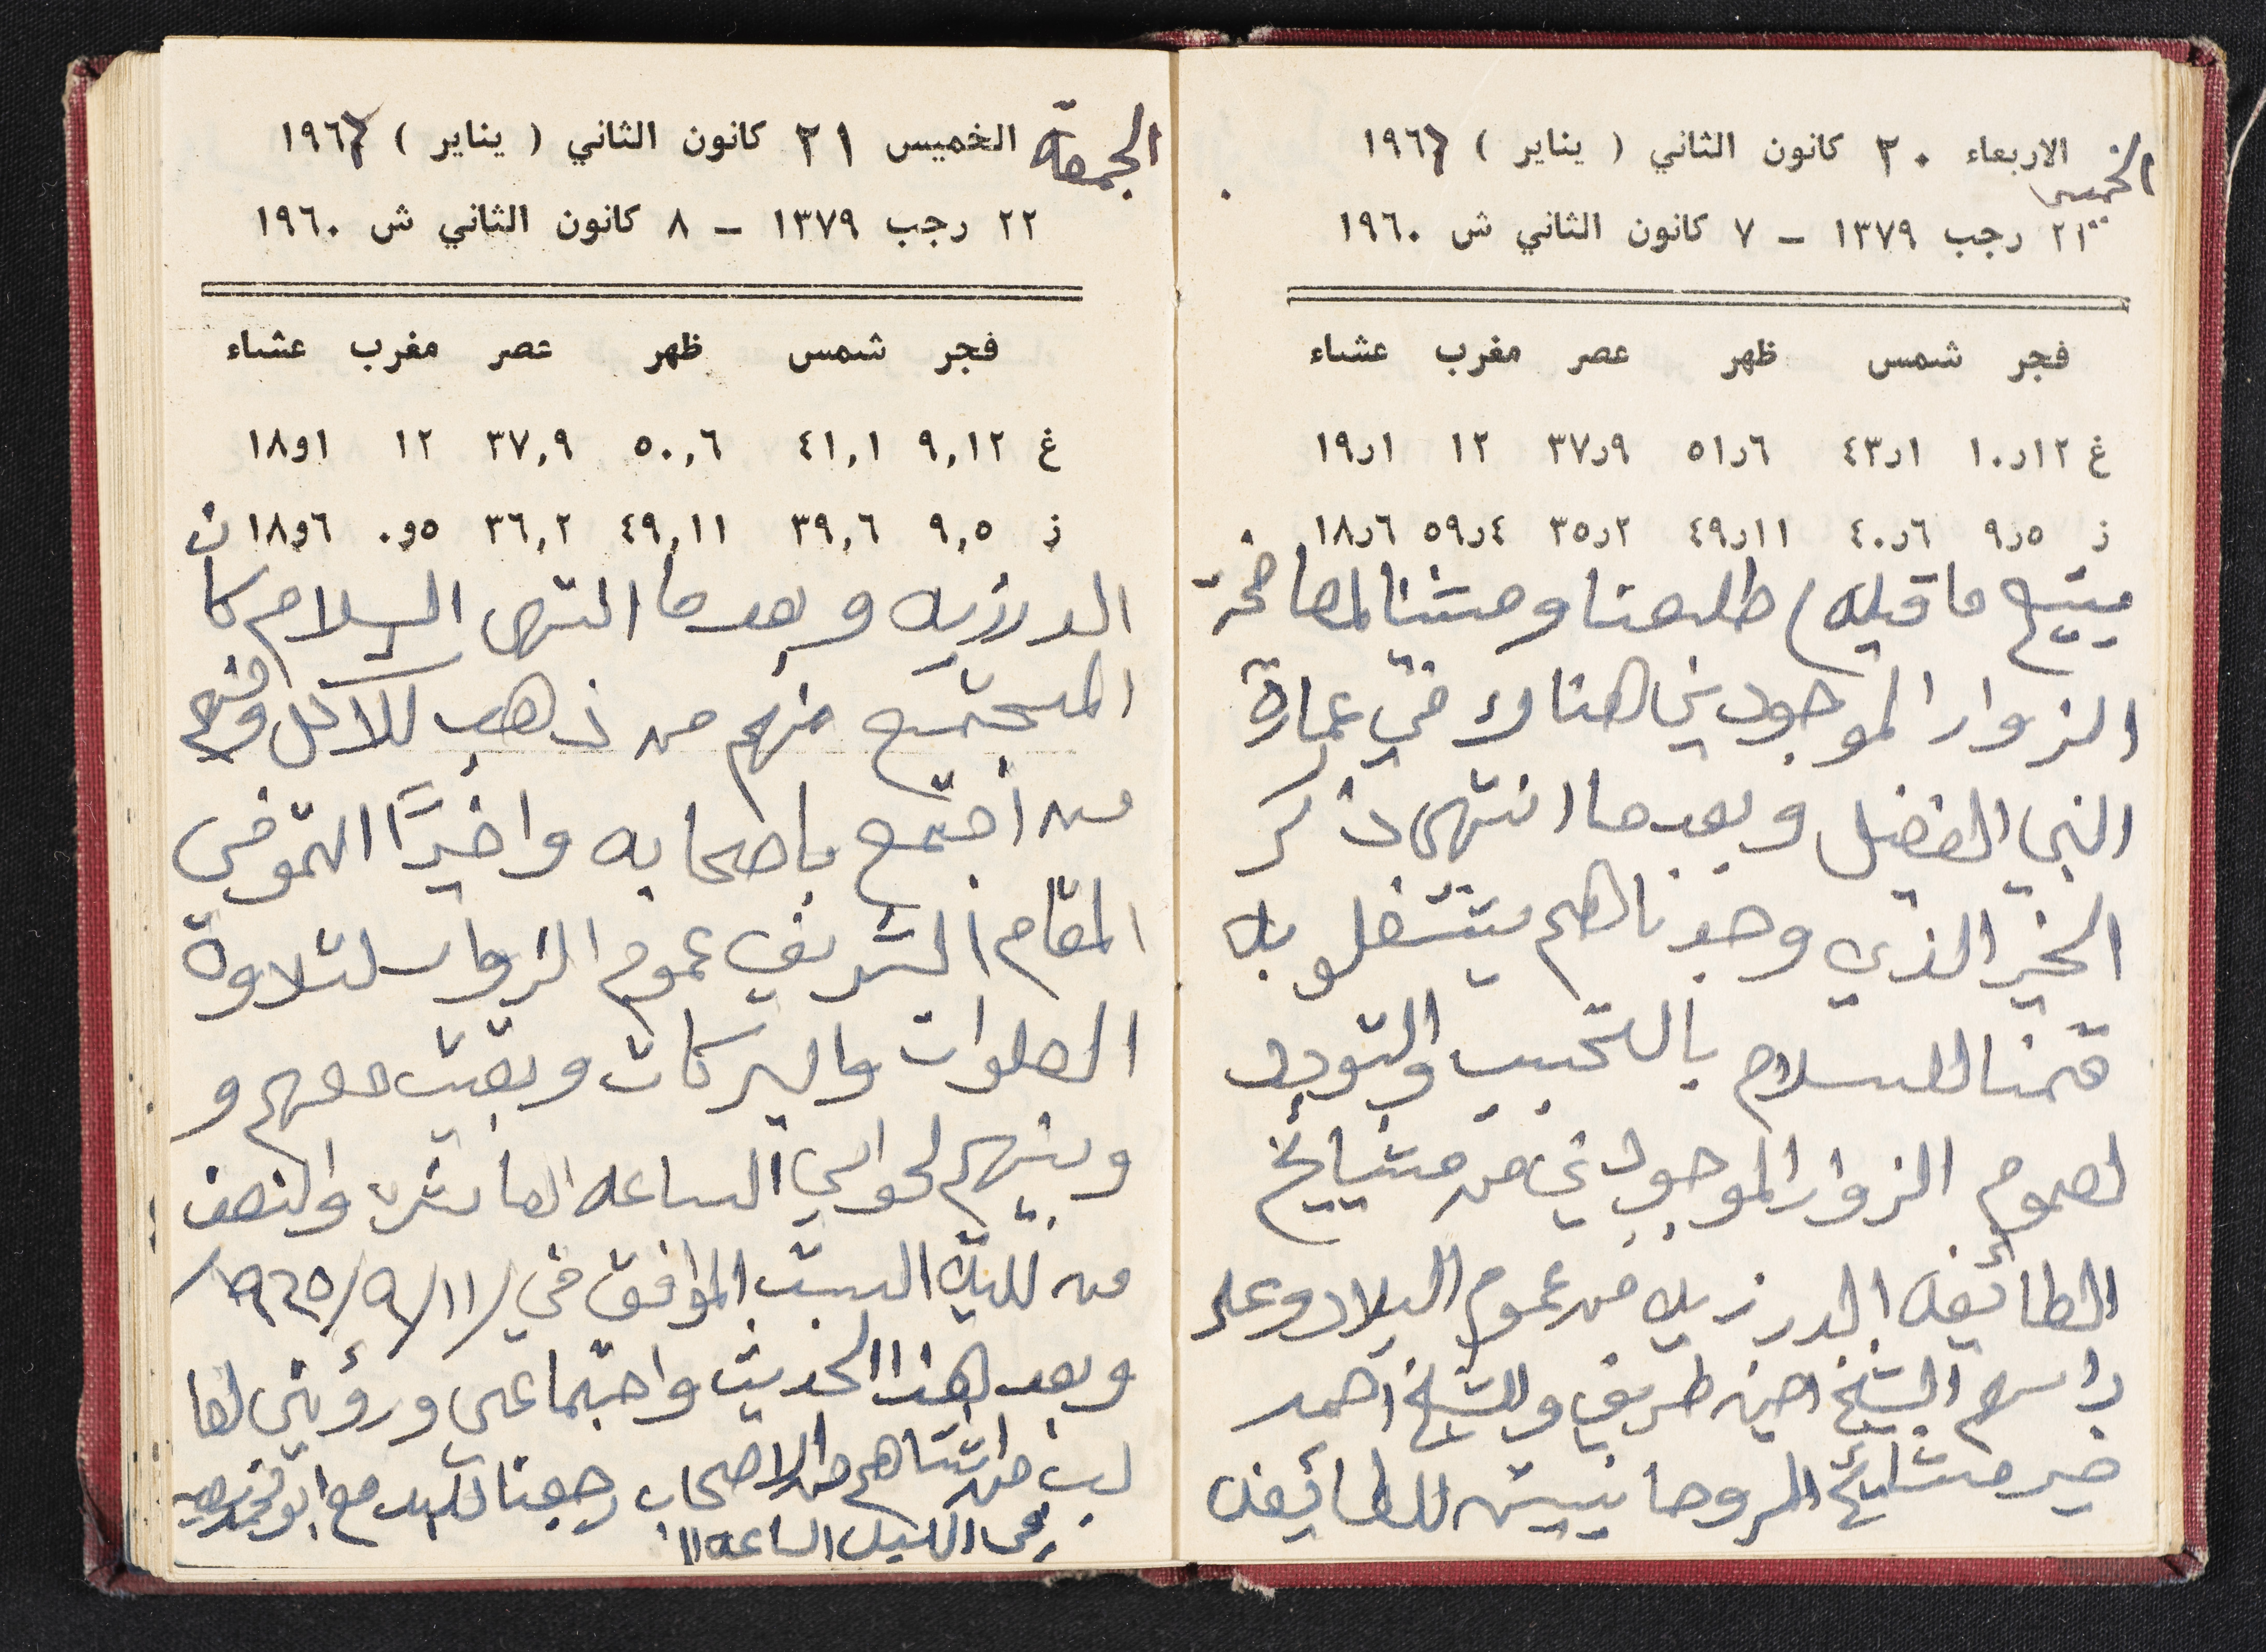 الخميس الاربعاء ٢٠ كانون الثاني ( يناير ) ١٩٦١
٢١ رجب ١٣٧٩ – ٧ كانون الثاني ش ١٩٦٠
فجر شمس ظهر عصر مغرب عشاء
غ ١٢ر١٠ ١ر٤٣ ٦ر٥١ ٩ر٣٧ ١٢ ١ر١٩
ز ٥ر٩ ٦ر٤٠ ١١ر٤٩ ٢ر٣٥ ٤ر٥٩ ٦ر١٨
ميتبع ما قبله) طلعنا ومشنا لمصافحة
الزوار الموجودين هناك في عمارة
النبي الفضيل وبعدما انتهى ذكر
الخير الذي وجدناهم يشتغلو به
قمنا للسلام بالتحبيب والتودد
لعموم الزوار الموجودين من مشيايخ
الطائفه الدرزيه من عموم البلاد وعلى
راسهم الشيخ امين طريف والشيخ احمد
خير مشايخ الروحانيين للطائفه
الجمعة الخميس ٢١ كانون الثاني ( يناير ) ١٩٦
٢٢ رجب ١٣٧٩ – ٨ كانون الثاني ش ١٩٦٠
فجر شمس ظهر عصر مغرب عشاء
غ ٩,١٢ ٤١,١ ٥٠,٦ ٣٧,٩ ١٢ ١و١٨
ز ٩,٥ ٣٩,٦ ٤٩,١١ ٣٦,٢ ٥و٠ ٦و١٨
الدرزيه وبعدما انتهى السلام كان
المجتمع منهم من ذهب للاكل ومنهم
من اجتمع باصحابه واخيرًا التمو في
المقام الشريف عموم الزوار لتلاوة
الصلوات والبركات وبقيت معهم و
وبينهم لحوالي الساعه العاشره والنصف
من لليلة السبت الموافق في /٩/١١/٩٦٥/
وبعد هذا الحديث واجتماعي ورؤيتي لغا
لب من اشتاهم من الاصحاب رجعنا للبلد مع ابو
في الليل الساعه ١١